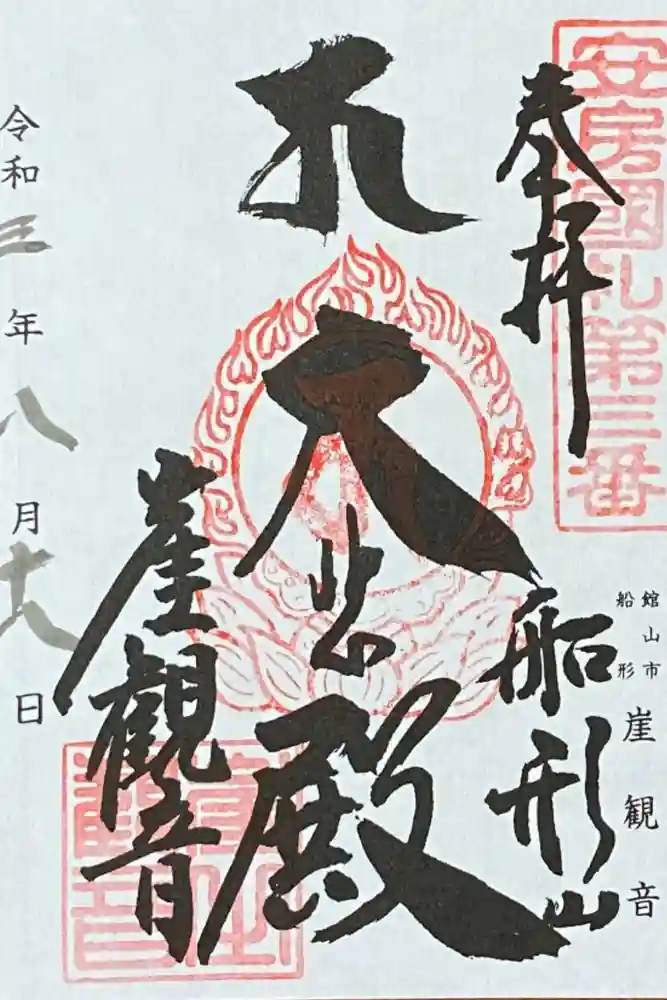 安房國札第三番
奉拝
船形山
館山市
船形
崖観音
大悲殿
崖觀音
令和三年八月十八日